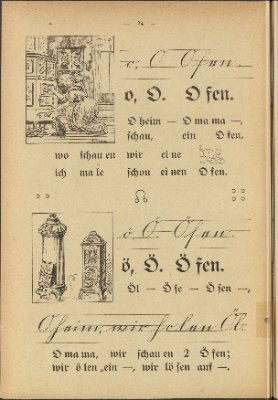 — 24 —
o, O Ofen.
o, O. Ofen.
Oheim — Omama —,
schau, ein Ofen.
wo schauen wir eine
ich male schon einen Ofen.
ö Ö. Öfen.
ö, Ö. Öfen.
Öl — Öse — Ösen —,
Oheim, wir holen Öl.
Omama, wir schauen 2 Öfen;
wir ölen ein —, wir lösen auf —.